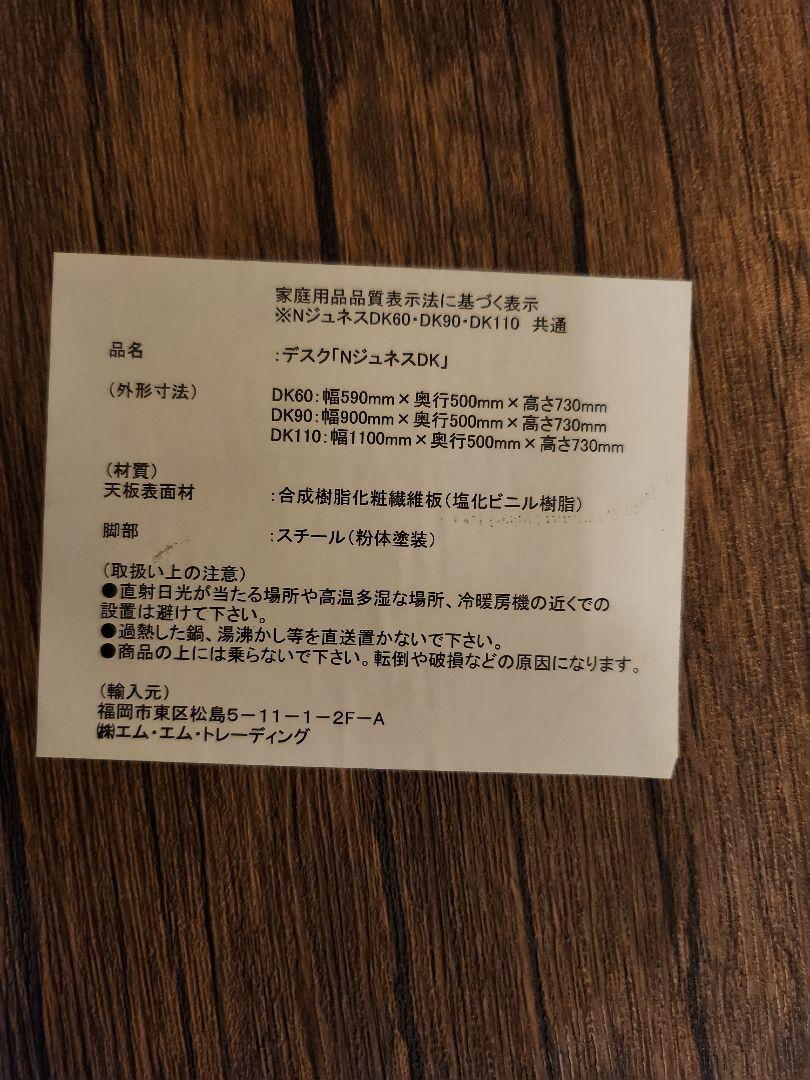 家庭用品品質表示法に基づく表示
※NジュネスDK60・DK90・DK110 共通
品名 :デスク「NジュネスDK」
(外形寸法) DK60:幅590mm×奥行500mm×高さ730mm
DK90:幅900mm×奥行500mm×高さ730mm
DK110:幅1100mm×奥行500mm×高さ730mm
(材質)
天板表面材 :合成樹脂化粧繊維板(塩化ビニル樹脂)
脚部 :スチール(粉体塗装)
(取扱い上の注意)
●直射日光が当たる場所や高温多湿な場所、冷暖房機の近くでの
設置は避けて下さい。
●過熱した鍋、湯沸かし等を直送置かないで下さい。
●商品の上には乗らないで下さい。転倒や破損などの原因になります。
(輸入元)
福岡市東区松島5-11-1-2F-A
㈱エム・エム・トレーディング